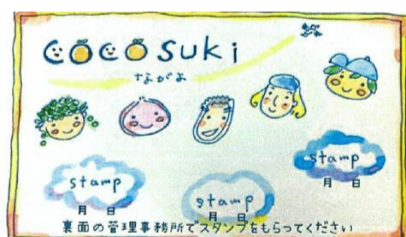 cocosuki
ながよ
stamp
月 日
stamp
月 日
stamp
月 日
裏面の管理事務所でスタンプをもらってください